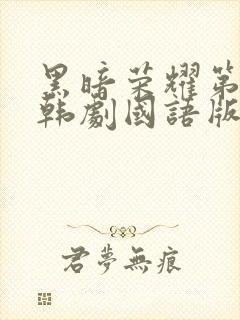 黑暗荣耀第
韩劇國語版
君夢無痕